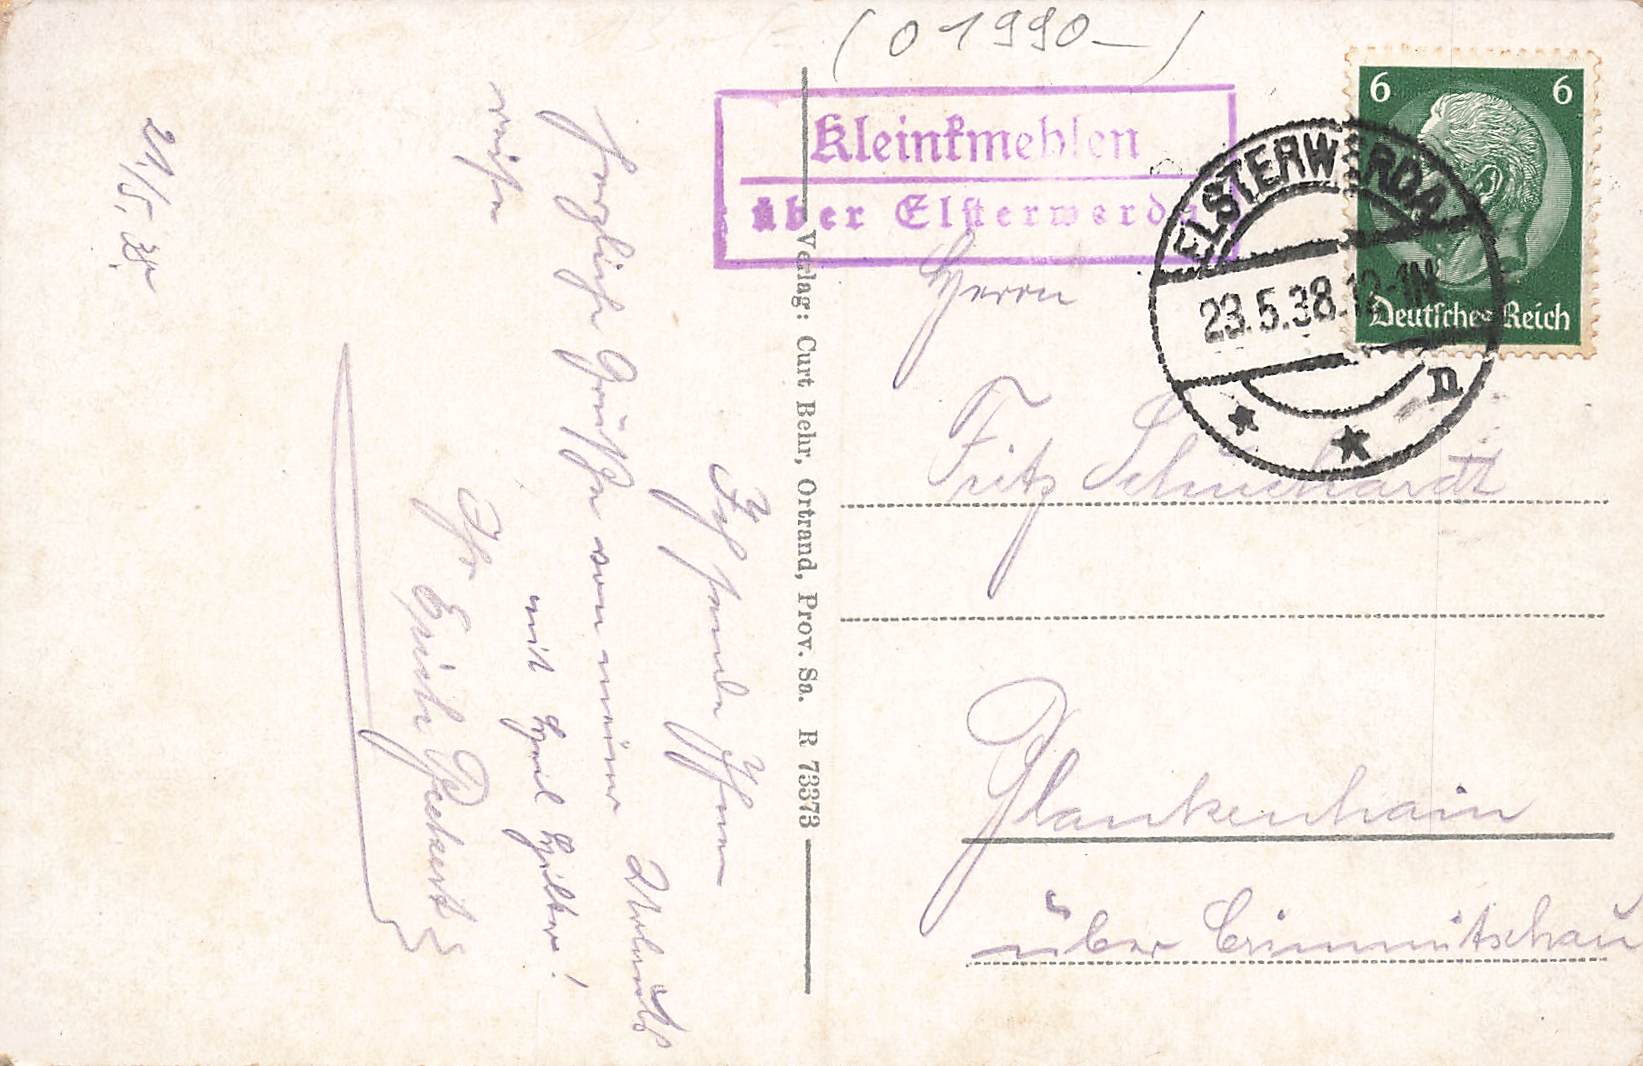 (01990—)
Kleinkmehlen
über Elsterwerda
6 6
Deutsches Reich
ELSTERWERDA
23.5.38.12-1N
n
Verlag: Curt Behr, Ortrand, Prov. Sa. R 73373
Herrn
Fritz Schuchardt
Blankenhain
über Crimmitschau
21/5. 38.
Ich sende Ihnen
herzliche Grüße von meiner Urlaubs
reise
mit Heil Hitler!
Ihr
Erich